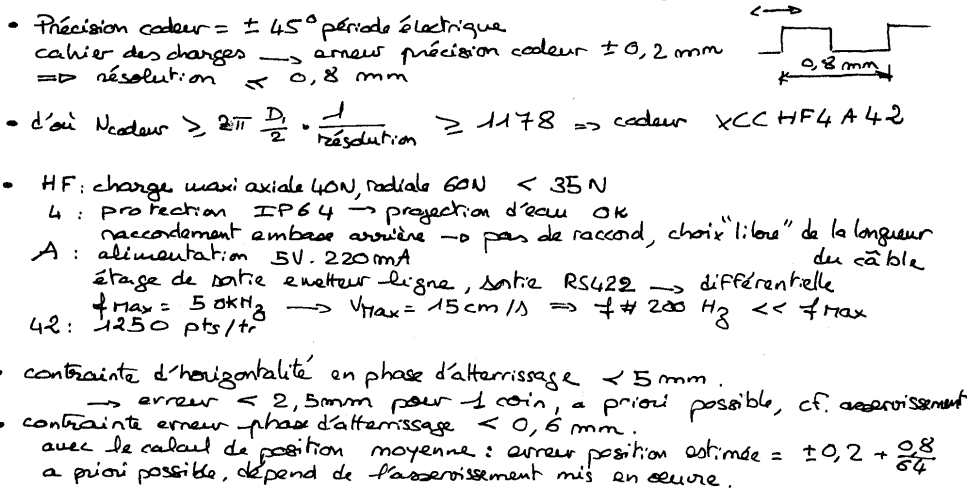 • Précision codeur = ± 45° période électrique
cahier des charges → erreur précision codeur ± 0,2 mm
⇒ résolution < 0,8 mm
0,8 mm
• d'où Ncodeur ≥ 2π D1/2 · 1/résolution ≥ 1178 ⇒ codeur XCC HF4 A 42
• HF: charge maxi axiale 40N, radiale 60N < 35 N
4 : protection IP64 → projection d'eau OK
raccordement embase arrière → pas de raccord, choix "libre" de la longueur
du câble
A : alimentation 5V. 220 mA
étage de sortie emetteur ligne, sortie RS422 → différentielle
fMax = 50kHz → VMax = 15 cm/s ⇒ f # 200 Hz << fMax
42: 1250 pts/tr
• contrainte d'horizontalité en phase d'atterrissage < 5 mm.
→ erreur < 2,5mm pour 1 coin, a priori possible, cf. asservissement
• contrainte erreur phase d'atterrissage < 0,6 mm.
avec le calcul de position moyenne : erreur position estimée = ±0,2 + 0,8/64
a priori possible, dépend de l'asservissement mis en oeuvre.